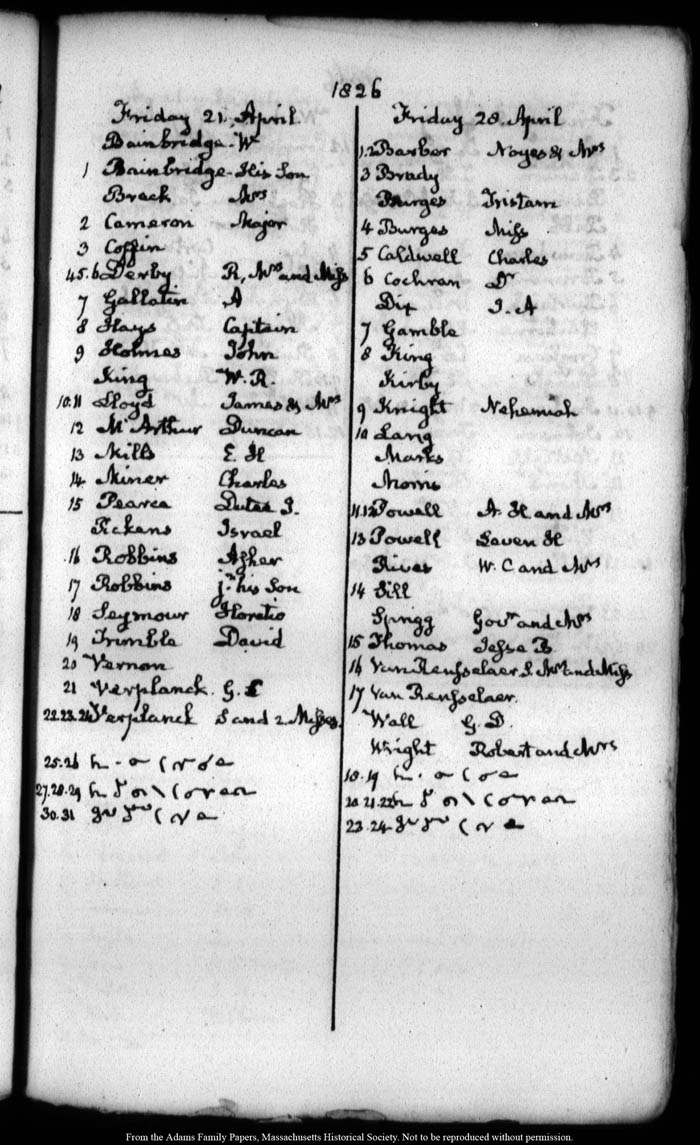 1826
Friday 21. April.
Bainbridge. W
1 Bainbridge. His Son
Brack Mrs
2 Cameron Major
3 Coffin
4.5.6 Derby R, Mrs and Miss
7 Gallatin A
8 Hays Captain
9 Holmes John
King W. R.
10.11 Lloyd James & Mrs
12 McArthur Duncan
13 Mills E. H
14 Miner Charles
15 Pearce Dutee J.
Pickens Israel
16 Robbins Asher
17 Robbins jr. his Son
18 Seymour Horatio
19 Trimble David
20 Vernon
21 Verplanck. G. C
22.23.24 Verplanck S and 2. Misses.
25.26
27.28.29
30.31
Friday 28. April
1.2 Barber Noyes & Mrs
3 Brady
Burges Tristam
4 Burges Miss
5 Caldwell Charles
6 Cochran Dr
Dix J. A
7 Gamble
8 King
Kirby
9 Knight Nehemiah
10 Lang
Marks
Morris
11.12 Powell A. H and Mrs
13 Powell Leven H
Rives W. C and Mrs
14 Sill
Sprigg Govr and Mrs
15 Thomas Jesse B
16 Van Rensselaer S. Mrs and Miss
17 Van Rensselaer.
Wall G. D.
Wright Robert and Mrs
18.19
20.21.22
23.24
From the Adams Family Papers, Massachusetts Historical Society. Not to be reproduced without permission.